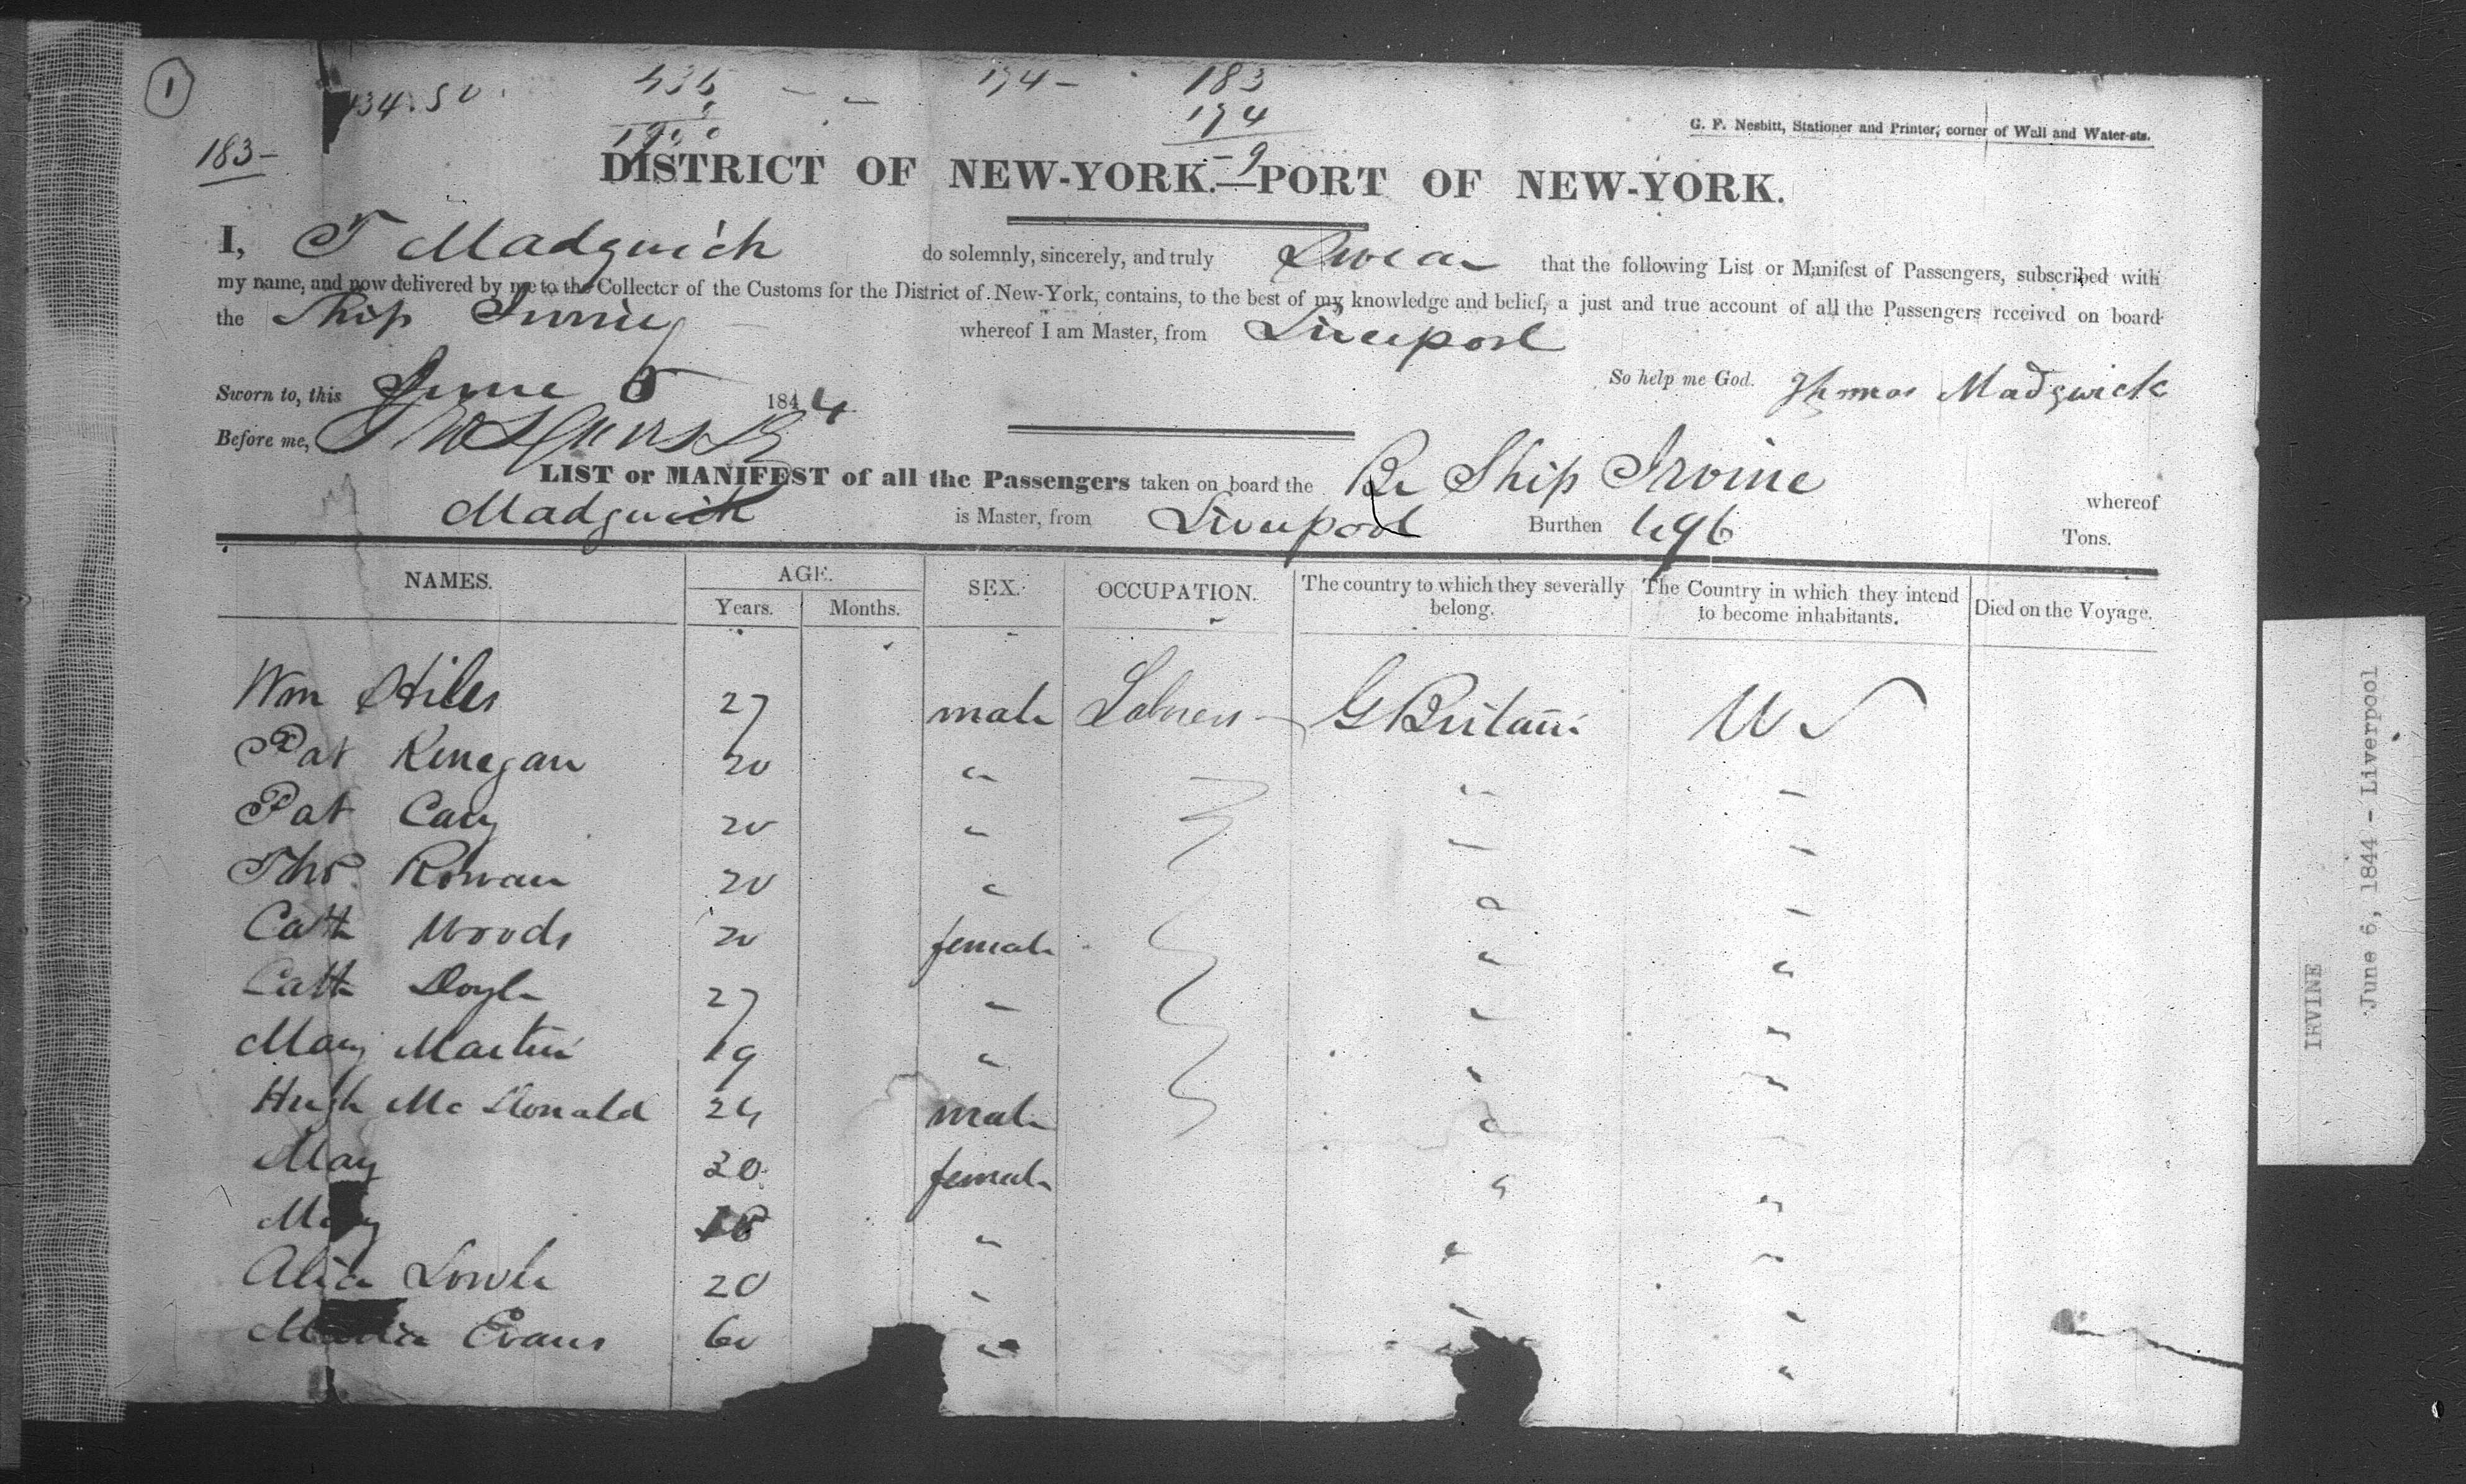 1
434.50 435 174 - 183
174
183 - 9
G. F. Nesbitt, Stationer and Printer, corner of Wall and Water-sts.
DISTRICT OF NEW-YORK.—PORT OF NEW-YORK.
I, T Madgwick do solemnly, sincerely, and truly Swear that the following List or Manifest of Passengers, subscribed with
my name, and now delivered by me to the Collector of the Customs for the District of New-York, contains, to the best of my knowledge and belief, a just and true account of all the Passengers received on board
the Ship Irvine whereof I am Master, from Liverpool
Sworn to, this June 6 1844 So help me God. Thomas Madgwick
Before me,
LIST or MANIFEST of all the Passengers taken on board the Br Ship Irvine whereof
Madgwick is Master, from Liverpool Burthen 496 Tons.
NAMES. AGE. SEX. OCCUPATION. The country to which they severally belong. The Country in which they intend to become inhabitants. Died on the Voyage.
Years. Months.
Wm Stiles 27 male Labourers G Britain U S
Pat Kenegan 20 "
Pat Cary 20 "
Thos Rowan 20 "
Cath Woods 20 female "
Cath Doyle 27 " "
Mary Martin 19 " "
Hugh McDonald 24 male "
Mary 20 female "
Mary 18 " "
Alice Lowle 20 " "
Maria Evans 60 " "
IRVINE
June 6, 1844 - Liverpool